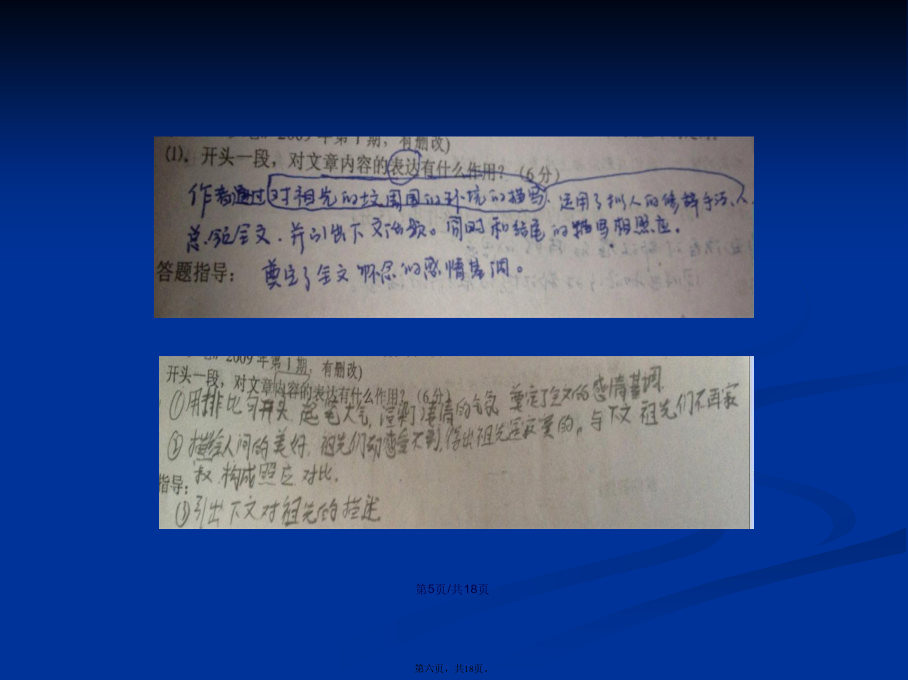 2009年第1期，有删改)
(1)、开头一段，对文章内容的表达有什么作用？（6分）
作者通过对祖先的坟周围的环境的描写，运用了拟人的修辞手法，人
总领全文，并引出下文话题。同时和结尾的描写相照应。
答题指导： 奠定了全文怀念的感情基调。
2009年第1期，有删改)
开头一段，对文章内容的表达有什么作用？（6分）
①用排比句开头，起笔大气，渲染了凄清的气氛 奠定了全文的感情基调
②描绘人间的美好，祖先们却感受不到，得出祖先是寂寞的。与下文祖先们不再寂
寞构成照应对比。
指导：
③引出下文对祖先的描述
第5页/共18页
第六页，共18页。